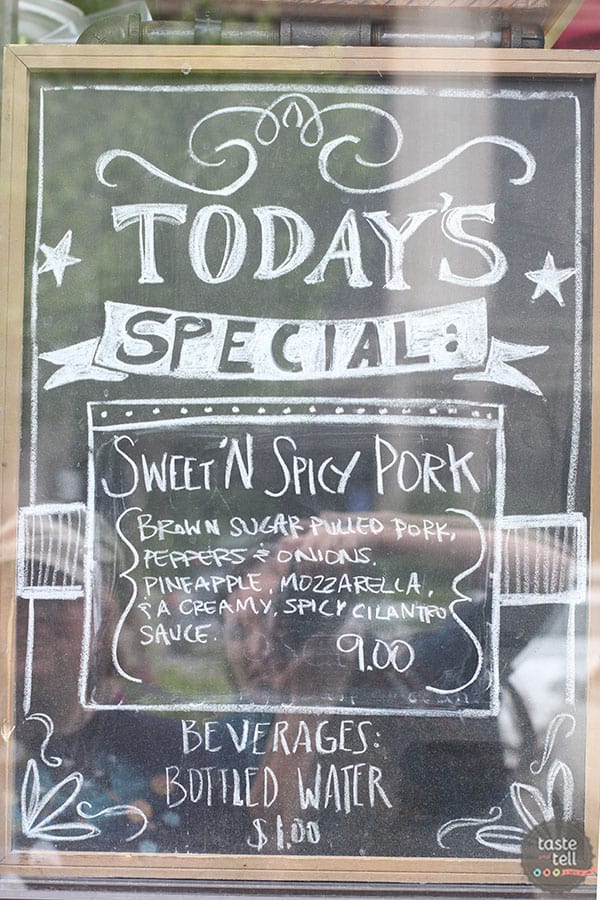 TODAY'S
SPECIAL:
SWEET 'N SPICY PORK
BROWN SUGAR PULLED PORK,
PEPPERS & ONIONS,
PINEAPPLE, MOZZARELLA,
& A CREAMY, SPICY CILANTRO
SAUCE.
9.00
BEVERAGES:
BOTTLED WATER
$1.00
taste
and
tell